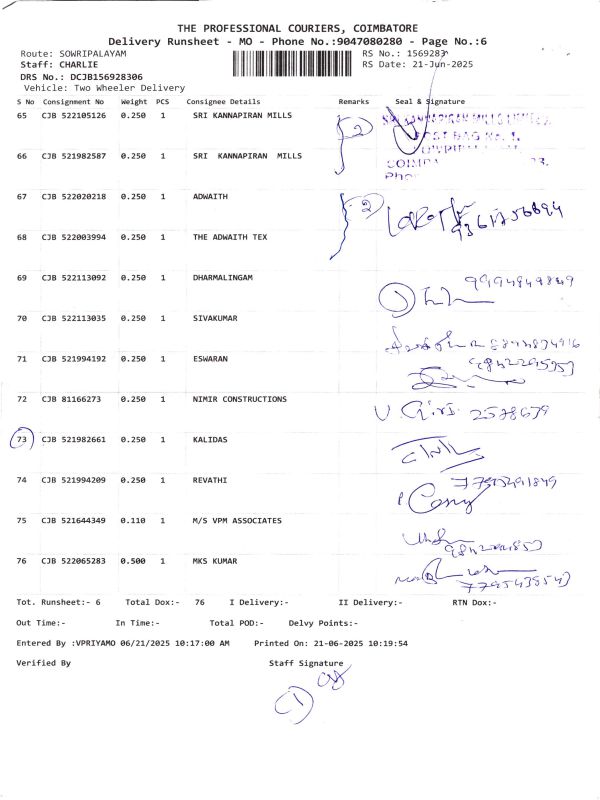 THE PROFESSIONAL COURIERS, COIMBATORE
Delivery Runsheet - MO - Phone No.:9047080280 - Page No.:6
Route: SOWRIPALAYAM RS No.: 1569283
Staff: CHARLIE RS Date: 21-Jun-2025
DRS No.: DCJB156928306
Vehicle: Two Wheeler Delivery
S No Consignment No Weight PCS Consignee Details Remarks Seal & Signature
65 CJB 522105126 0.250 1 SRI KANNAPIRAN MILLS 2
66 CJB 521982587 0.250 1 SRI KANNAPIRAN MILLS
67 CJB 522020218 0.250 1 ADWAITH 2
68 CJB 522003994 0.250 1 THE ADWAITH TEX
69 CJB 522113092 0.250 1 DHARMALINGAM
70 CJB 522113035 0.250 1 SIVAKUMAR
71 CJB 521994192 0.250 1 ESWARAN
72 CJB 81166273 0.250 1 NIMIR CONSTRUCTIONS
73 CJB 521982661 0.250 1 KALIDAS
74 CJB 521994209 0.250 1 REVATHI
75 CJB 521644349 0.110 1 M/S VPM ASSOCIATES
76 CJB 522065283 0.500 1 MKS KUMAR
Tot. Runsheet:- 6 Total Dox:- 76 I Delivery:- II Delivery:- RTN Dox:-
Out Time:- In Time:- Total POD:- Delvy Points:-
Entered By :VPRIYAMO 06/21/2025 10:17:00 AM Printed On: 21-06-2025 10:19:54
Verified By Staff Signature